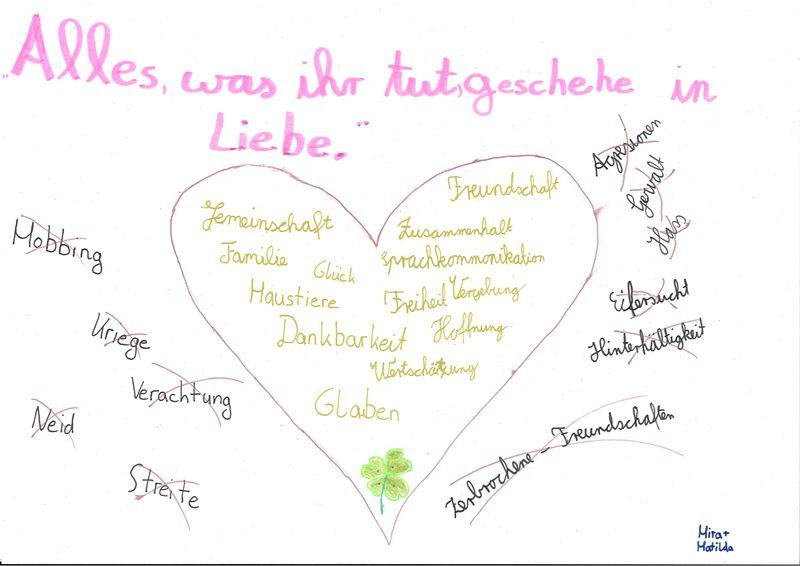 „Alles, was ihr tut, geschehe in
Liebe."
Agressionen
Gewalt
Hass
Freundschaft
Gemeinschaft
Zusammenhalt
Mobbing
Familie
Sprachkommonikation
Glück
Haustiere
Freiheit
Vergebung
Eifersucht
Kriege
Dankbarkeit
Hoffnung
Hinterhältigkeit
Wertschätzung
Verachtung
Glauben
Neid
Zerbrochene - Freundschaften
Streite
Mira +
Matilda